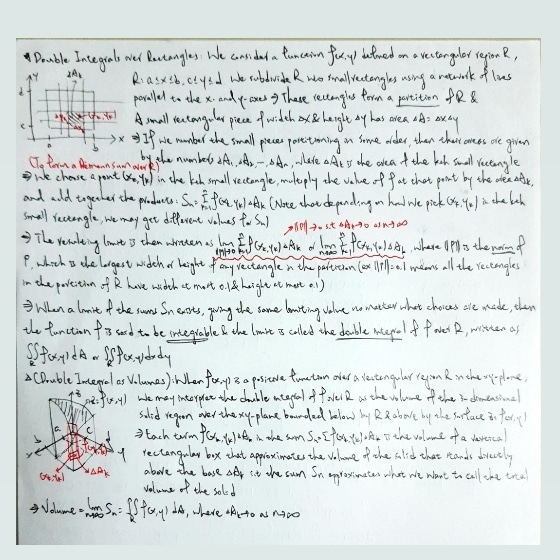 * Double Integrals over Rectangles: We consider a function f(x,y) defined on a rectangular region R,
R: a≤x≤b, c≤y≤d We subdivide R into small rectangles using a network of lines
parallel to the x- and y-axes ⇒ These rectangles form a partition of R &
A small rectangular piece of width Δx & height Δy has area ΔA = ΔxΔy
⇒ If we number the small pieces partitioning in some order, then their areas are given
by the numbers ΔA₁, ΔA₂, ..., ΔAₙ, where ΔAₖ is the area of the kth small rectangle
(To form a Riemann sum over R)
⇒ We choose a point (xₖ,yₖ) in the kth small rectangle, multiply the value of f at that point by the area ΔAₖ,
and add together the products: Sₙ = Σₖ₌₁ⁿ f(xₖ,yₖ)ΔAₖ (Note that depending on how we pick (xₖ,yₖ) in the kth
small rectangle, we may get different values for Sₙ)
→ ||P||→0 s.t ΔAₖ→0 as n→∞
⇒ The resulting limit is then written as lim ||P||→0 Σₖ₌₁ⁿ f(xₖ,yₖ)ΔAₖ or lim n→∞ Σₖ₌₁ⁿ f(xₖ,yₖ)ΔAₖ, where ||P|| is the norm of
P, which is the largest width or height of any rectangle in the partition (ex ||P||=0.1 means all the rectangles
in the partition of R have width at most 0.1 & height at most 0.1)
⇒ When a limit of the sums Sₙ exists, giving the same limiting value no matter what choices are made, then
the function f is said to be integrable & the limit is called the double integral of f over R, written as
∬_R f(x,y) dA or ∬_R f(x,y) dxdy
Δ (Double Integral as Volumes): When f(x,y) is a positive function over a rectangular region R in the xy-plane,
we may interpret the double integral of f over R as the volume of the 3-dimensional
solid region over the xy-plane bounded below by R & above by the surface z=f(x,y)
⇒ Each term f(xₖ,yₖ)ΔAₖ in the sum Sₙ = Σ f(xₖ,yₖ)ΔAₖ is the volume of a vertical
rectangular box that approximates the volume of the solid that stands directly
above the base ΔAₖ s.t the sum Sₙ approximates what we want to call the total
volume of the solid
⇒ Volume = lim n→∞ Sₙ = ∬_R f(x,y) dA, where ΔAₖ→0 as n→∞